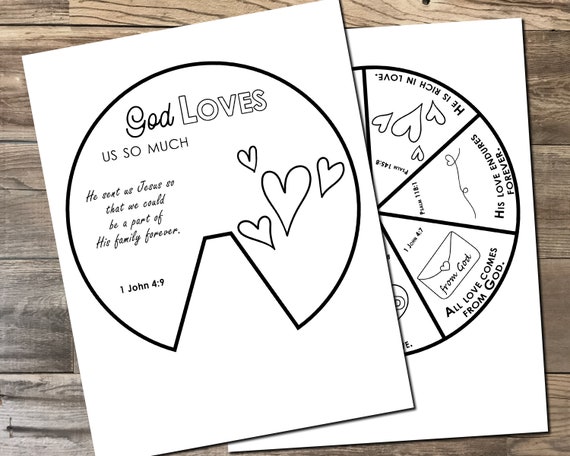 God LOVES
US SO MUCH
He sent us Jesus so
that we could
be a part of
His family forever.
1 John 4:9
HE IS RICH IN LOVE.
PSALM 145:8
HIS LOVE ENDURES
FOREVER.
1 John 4:7
from God
ALL LOVE COMES
FROM GOD.